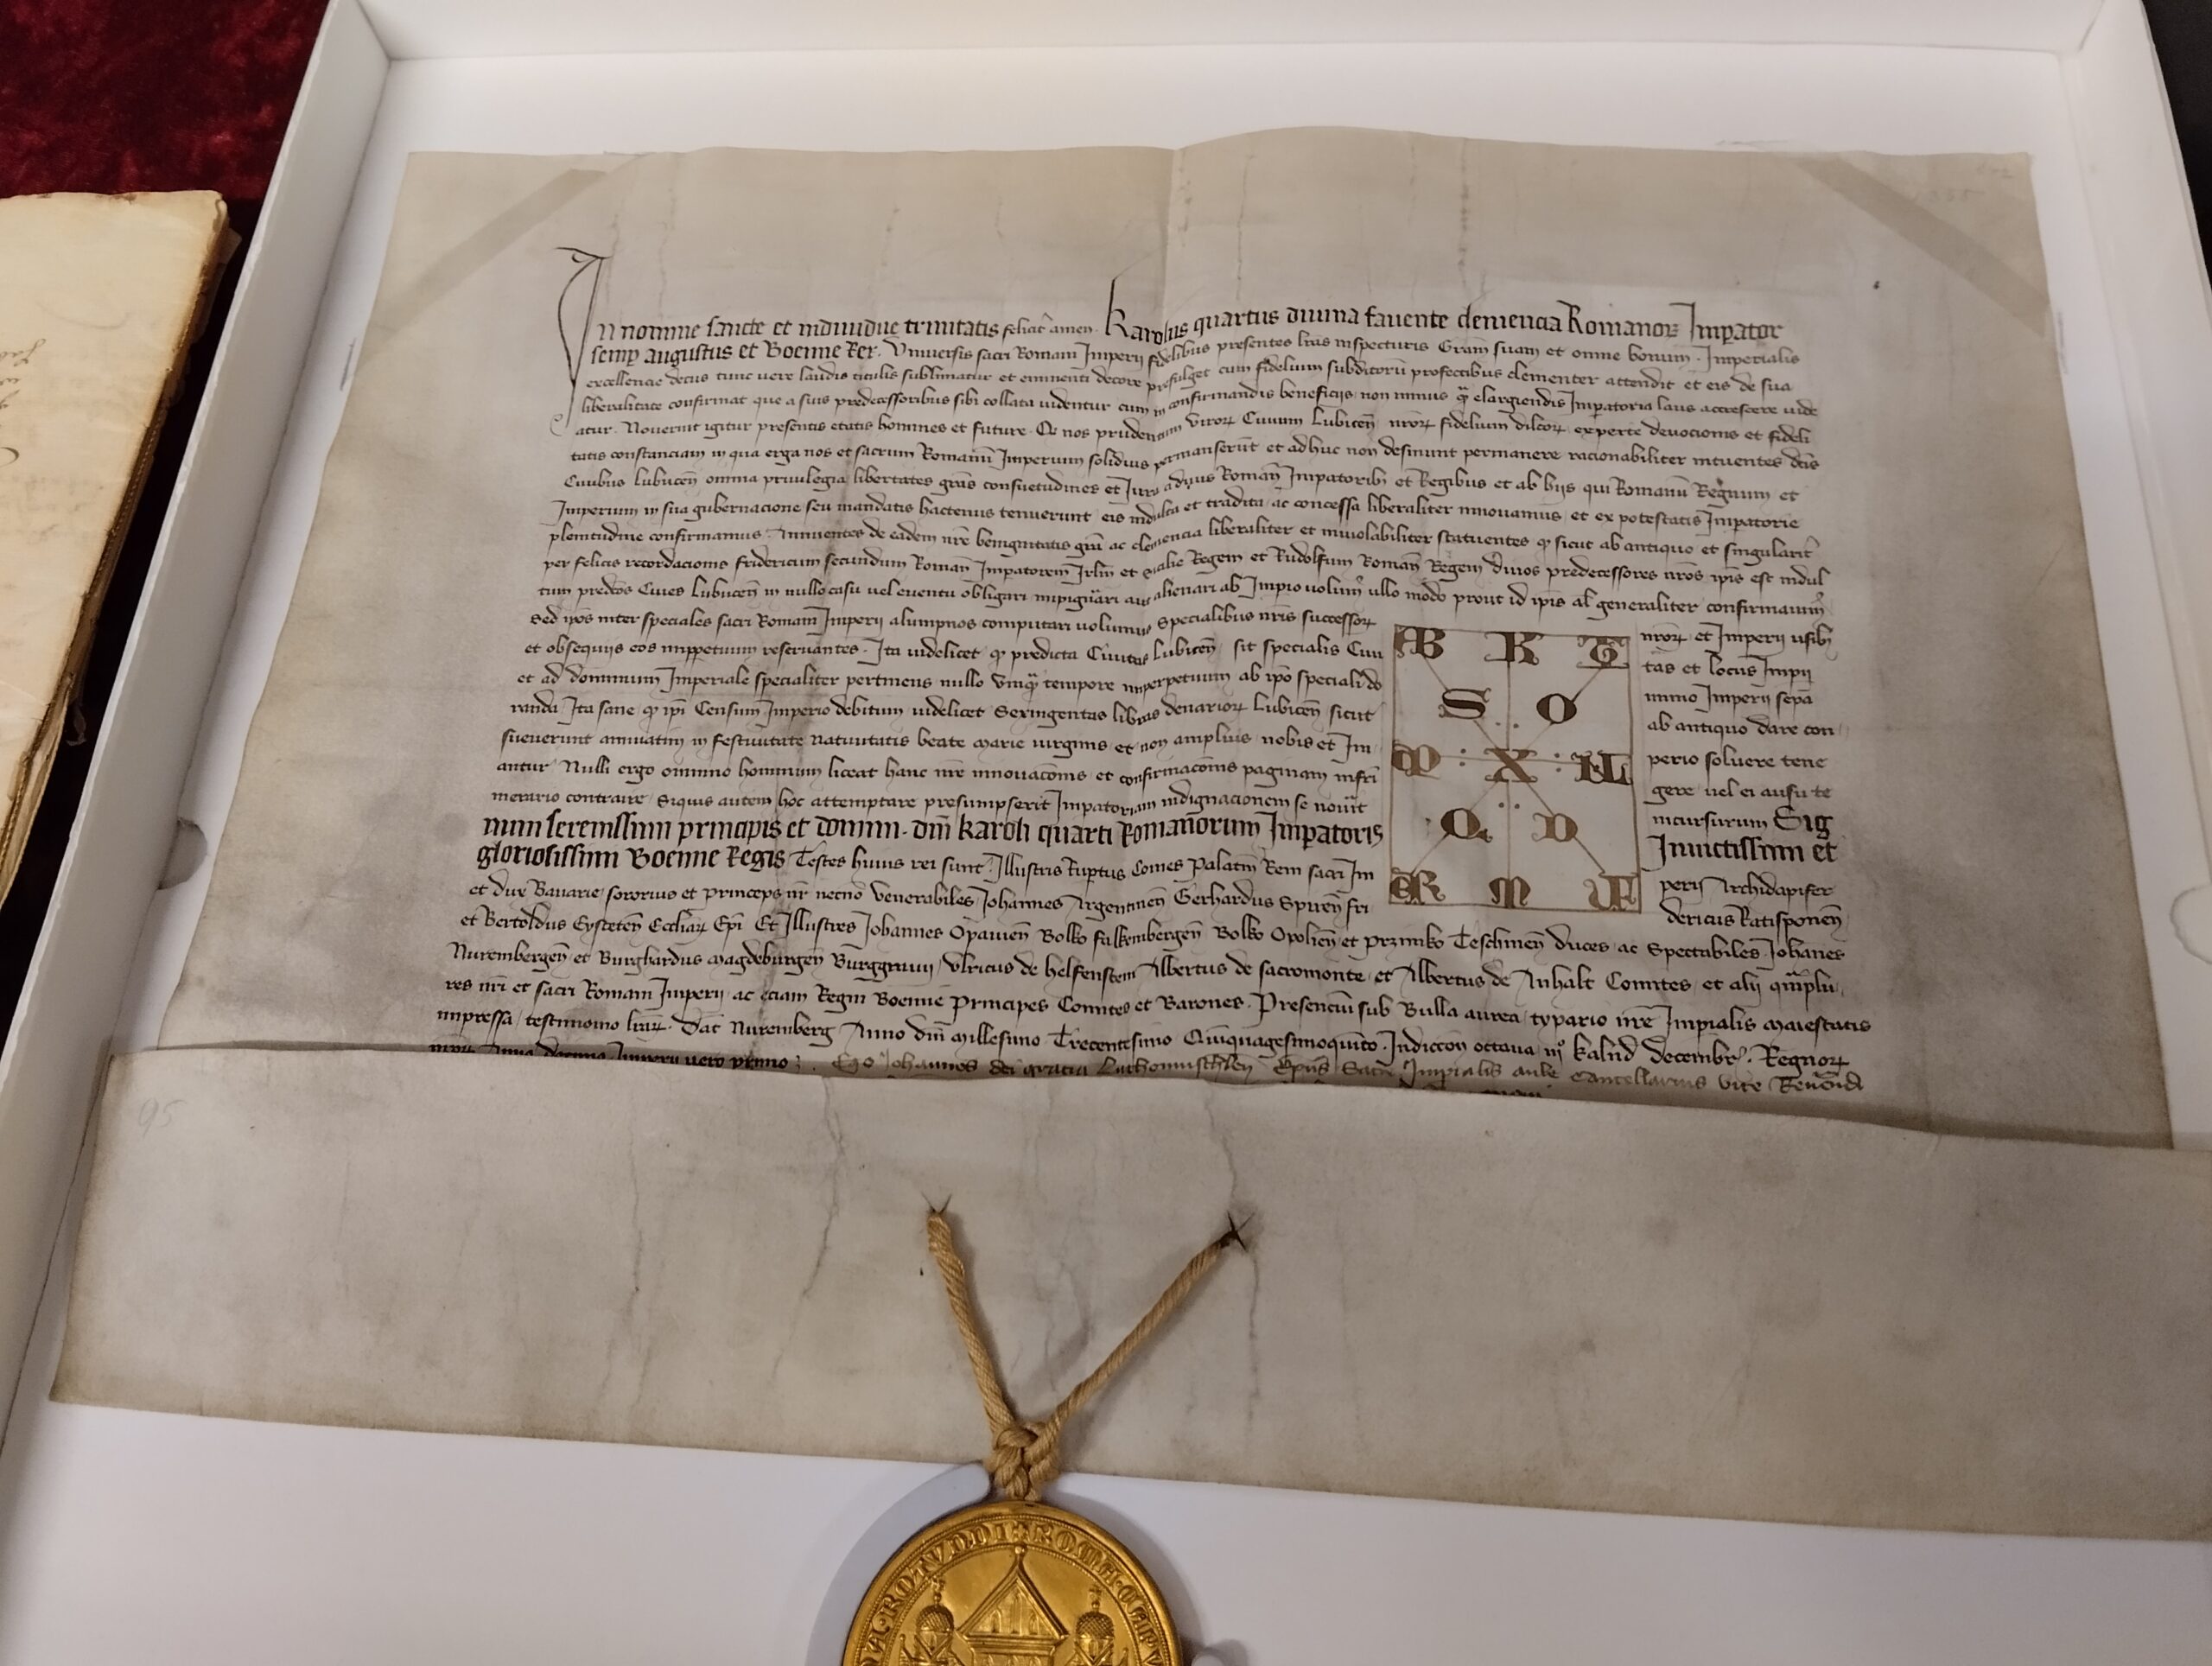 In nomine sancte et individue trinitatis felicit amen. Karolus quartus divina favente clemencia Romanor Imperator
semp augustus et Boemie Rex. Universis sacri Romani Imperii fidelibus presentes lras inspecturis Gram suam et omne bonum. Imperialis
excellencie decus tunc vere laudis titulis sublimatur et eminenti decore prefulget cum fidelium subditoru profectibus clementer attendit et eis de sua
liberalitate confirmat que a suis predecessoribus sibi collata videntur cum in confirmandis beneficiis non minus qm elargiendis Impatoria laus accrescere vide
atur. Noverint igitur presentis etatis homines et future. Qd nos prudentum viror Civium Lubicen nror fidelium dilcor experte devocionis et fideli
tatis constanciam in qua erga nos et sacrum Romanu Imperium solidius permanserut et adhuc non desinunt permanere racionabiliter intuentes dcis
Civibus Lubicen omnia privilegia libertates gras consuetudines et Iura a divis Roman Impatorib et Regibus et ab hiis qui Romanu Regnum et
Imperium in sua gubernacione seu mandatis hactenus tenuerunt eis indulta et tradita ac concessa liberaliter innovamus et ex potestatis Impatorie
plenitudine confirmamus. Annuentes de eadem nre benignitatis gra ac clemencia liberaliter et inviolabiliter statuentes qd sicut ab antiquo et singularit
per felicis recordacionis fridericum secundum Roman Impatorem Irlm et Sicilie Regem et Rudolfum Roman Regem divos predecessores nros ipis est indul
tum predcos Cives Lubicen in nullo casu vel eventu obligari inpignari aut alienari ab Impio volum ullo modo prout id ipis al generaliter confirmavim
Sed ipos inter speciales sacri Romani Imperii alumpnos computari volumus Specialibus nris successor nror et Imperii usib
et obsequiis eos inppetuum reservantes. Ita videlicet qd predicta Civitas Lubicen sit specialis Civi tas et locus Impii
et ad dominium Imperiale specialiter pertinens nullo umqm tempore inperpetuum ab ipo speciali do minio Imperii sepa
randa Ita sane qd ipi Censum Imperio debitum videlicet Sexingentas libras denarior Lubicen sicut ab antiquo dare con
sueverunt annuatim in festivitate Nativitatis beate Marie virginis et non amplius nobis et Im perio solvere tene
antur Nulli ergo omnino hominum liceat hanc nre innovacionis et confirmacionis paginam infri gere vel ei ausu te
merario contraire Siquis autem hoc attemptare presumpserit Impatoriam indignacionem se novit incursurum Sig
num serenissimi principis et domini. dni Karoli quarti Romanorum Impatoris Invictissimi et
gloriosissimi Boemie Regis Testes huius rei sunt. Illustris Ruptus Comes Palatin Reni sacri Im perii Archidapifer
et dux Bavarie sororius et princeps nr necno Venerabiles Johannes Argentinen Gerhardus Spiren fri dericus Ratisponen
et Bertoldus Eysteten Ecclar Epi Et Illustres Johannes Opavien Bolko falkembergen Bolko Opolien et Przimko Teschinen duces ac Spectabiles Johanes
Nurembergen et Burghardus Magdeburgen Burggravii Ulricus de helfenstein Albertus de sacromonte et Albertus de Anhalt Comites et alii qmplu
res nri et sacri Romani Imperii ac eciam Regni Boemie Principes Comites et Barones. Presenciu sub Bulla aurea typario nre Impialis Maiestatis
impressa testimonio lrar. Dat Nuremberg Anno dni Millesimo Trecentesimo Quinquagesimoquinto. Indiccon octava Kalnd decembr. Regnor
nror Anno decimo Imperii vero primo. Ego Johannes dei gracia Luthomuschlen Epus Sacre Impialis aule Cancellarius vice Reverendi
K T
S O
X
Q D
R M
95
ROTVNDI ROMA CAPV